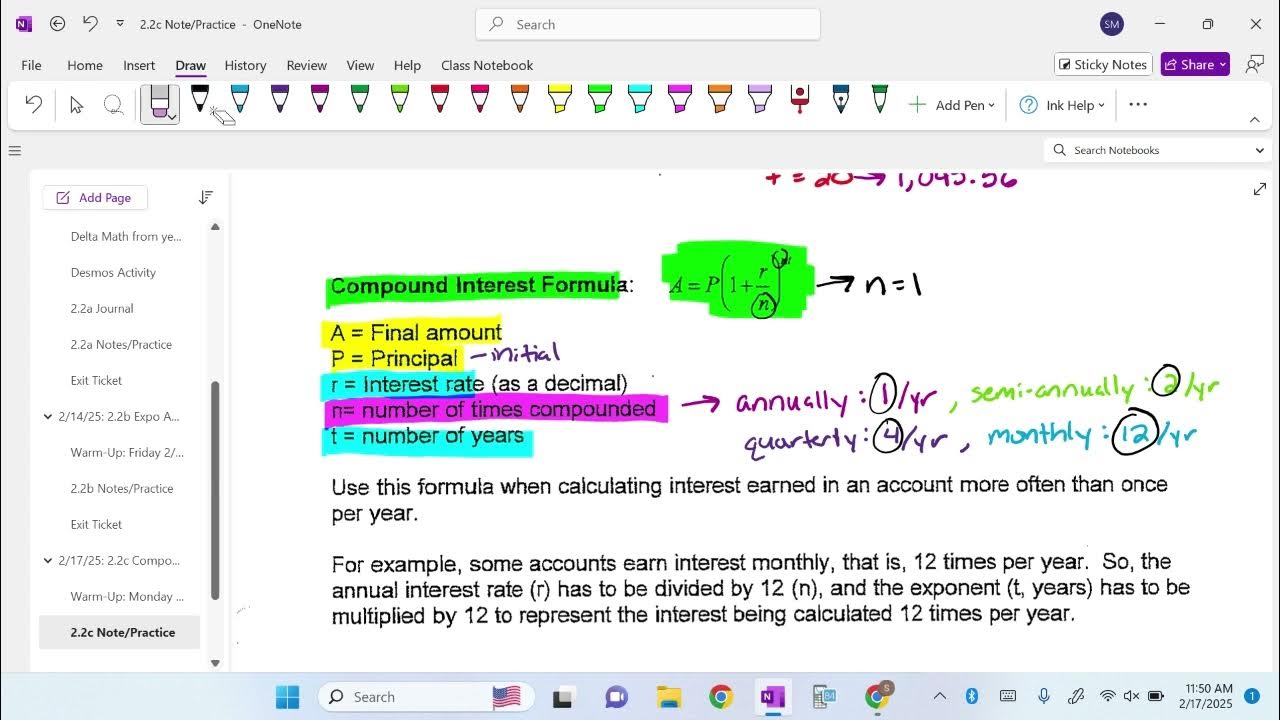 2.2c Note/Practice - OneNote
Search
SM
File Home Insert Draw History Review View Help Class Notebook
Sticky Notes
Share
Add Pen
Ink Help
Search Notebooks
Add Page
Delta Math from ye...
Desmos Activity
2.2a Journal
2.2a Notes/Practice
Exit Ticket
2/14/25: 2.2b Expo A...
Warm-Up: Friday 2/...
2.2b Notes/Practice
Exit Ticket
2/17/25: 2.2c Compo...
Warm-Up: Monday ...
2.2c Note/Practice
t = 20 → 1,045.56
Compound Interest Formula: A = P(1 + r/n)^nt → n=1
A = Final amount
P = Principal - initial
r = Interest rate (as a decimal)
n= number of times compounded → annually: 1/yr, semi-annually: 2/yr
t = number of years quarterly: 4/yr, monthly: 12/yr
Use this formula when calculating interest earned in an account more often than once
per year.
For example, some accounts earn interest monthly, that is, 12 times per year. So, the
annual interest rate (r) has to be divided by 12 (n), and the exponent (t, years) has to be
multiplied by 12 to represent the interest being calculated 12 times per year.
Search
11:50 AM
2/17/2025
1